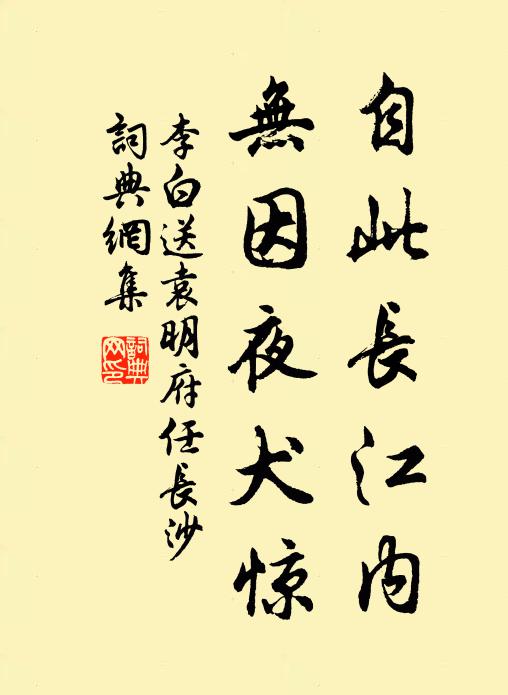 自此長江内
無因夜犬惊
李白送袁明府任長沙
詞典網集
詞典
网印